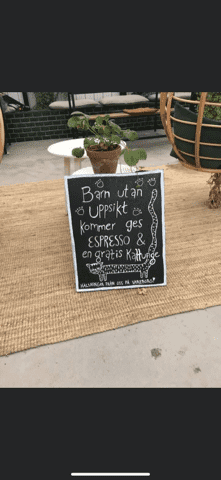 Barn utan
uppsikt
kommer ges
ESPRESSO &
en gratis Kattunge